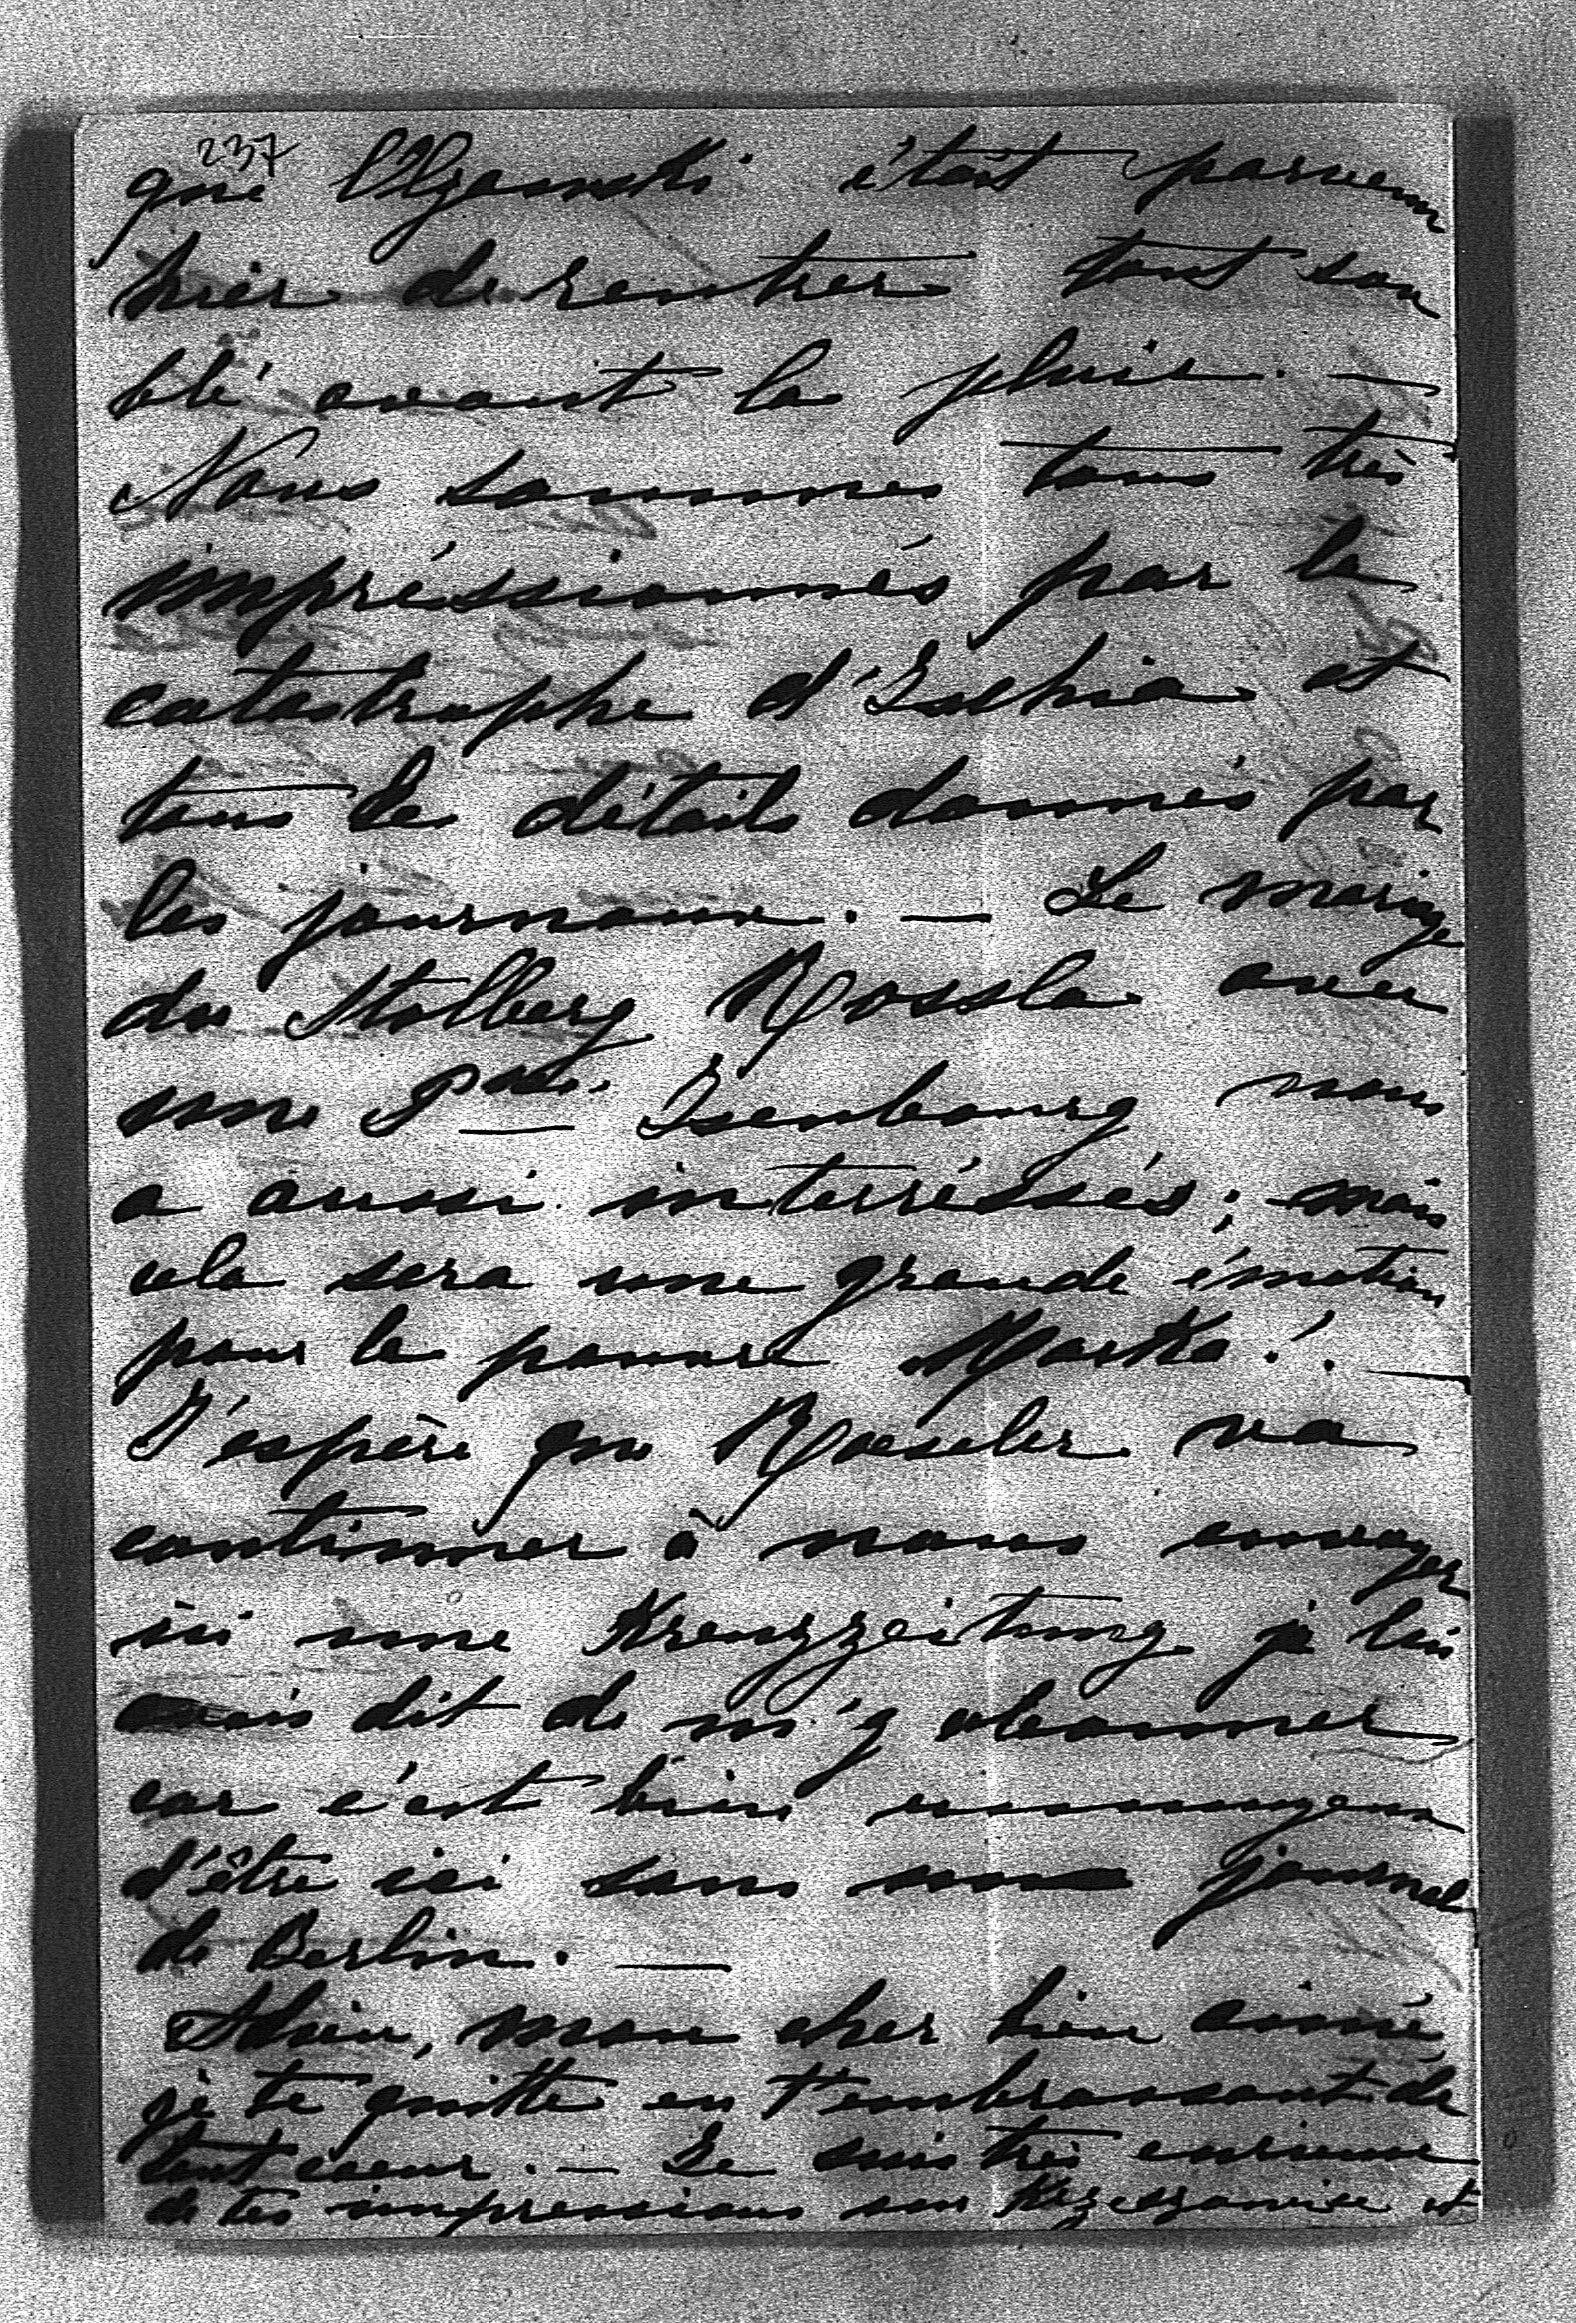 237
que Olszowski était parvenu
hier de rentrer tout son
blé avant la pluie. —
Nous sommes tous très
impréssionnés par la
catastrophe d'Ischia et
tous les détails donnés par
les journaux. — Le mariage
du Stolberg Rossla avec
une Pcesse Isenbourg nous
a aussi interréssés; mais
cela sera une grande émotion
pour la pauvre Marka! —
J'espère que Roeseler va
continuer à nous envoyer
ici une Kreuzzeitung je lui
avais dit de m'y abonner
car c'est bien ennuyeux
d'être ici sans journal
de Berlin. —
Adieu, mon cher bien aimé
je te quitte en t'embrassant de
tout coeur. — Je suis très curieuse
de tes impressions sur et